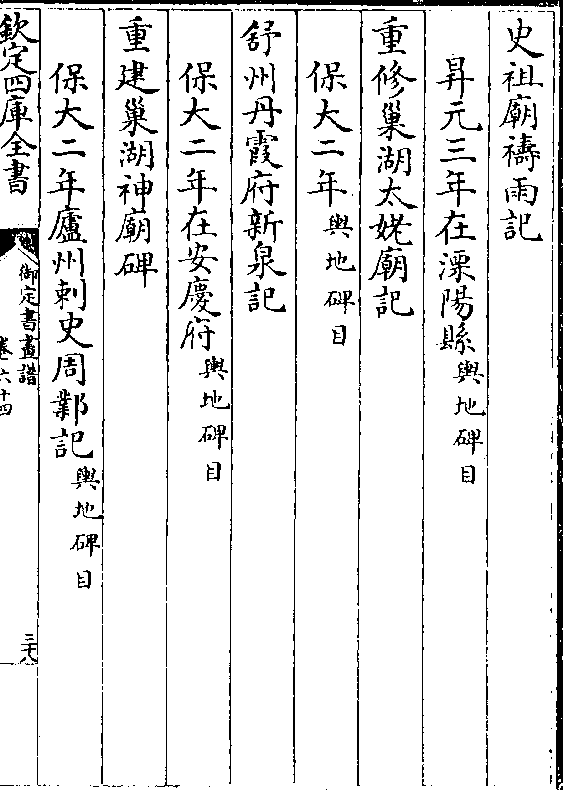 史祖廟禱雨記
昇元三年在溧陽縣輿地碑目
重修巢湖太姥廟記
保大二年輿地碑目
舒州丹霞府新泉記
保大二年在安慶府輿地碑目
重建巢湖神廟碑
保大二年廬州刺史周鄴記輿地碑目
欽定四庫全書
御定書畫譜
卷六十四
三十八